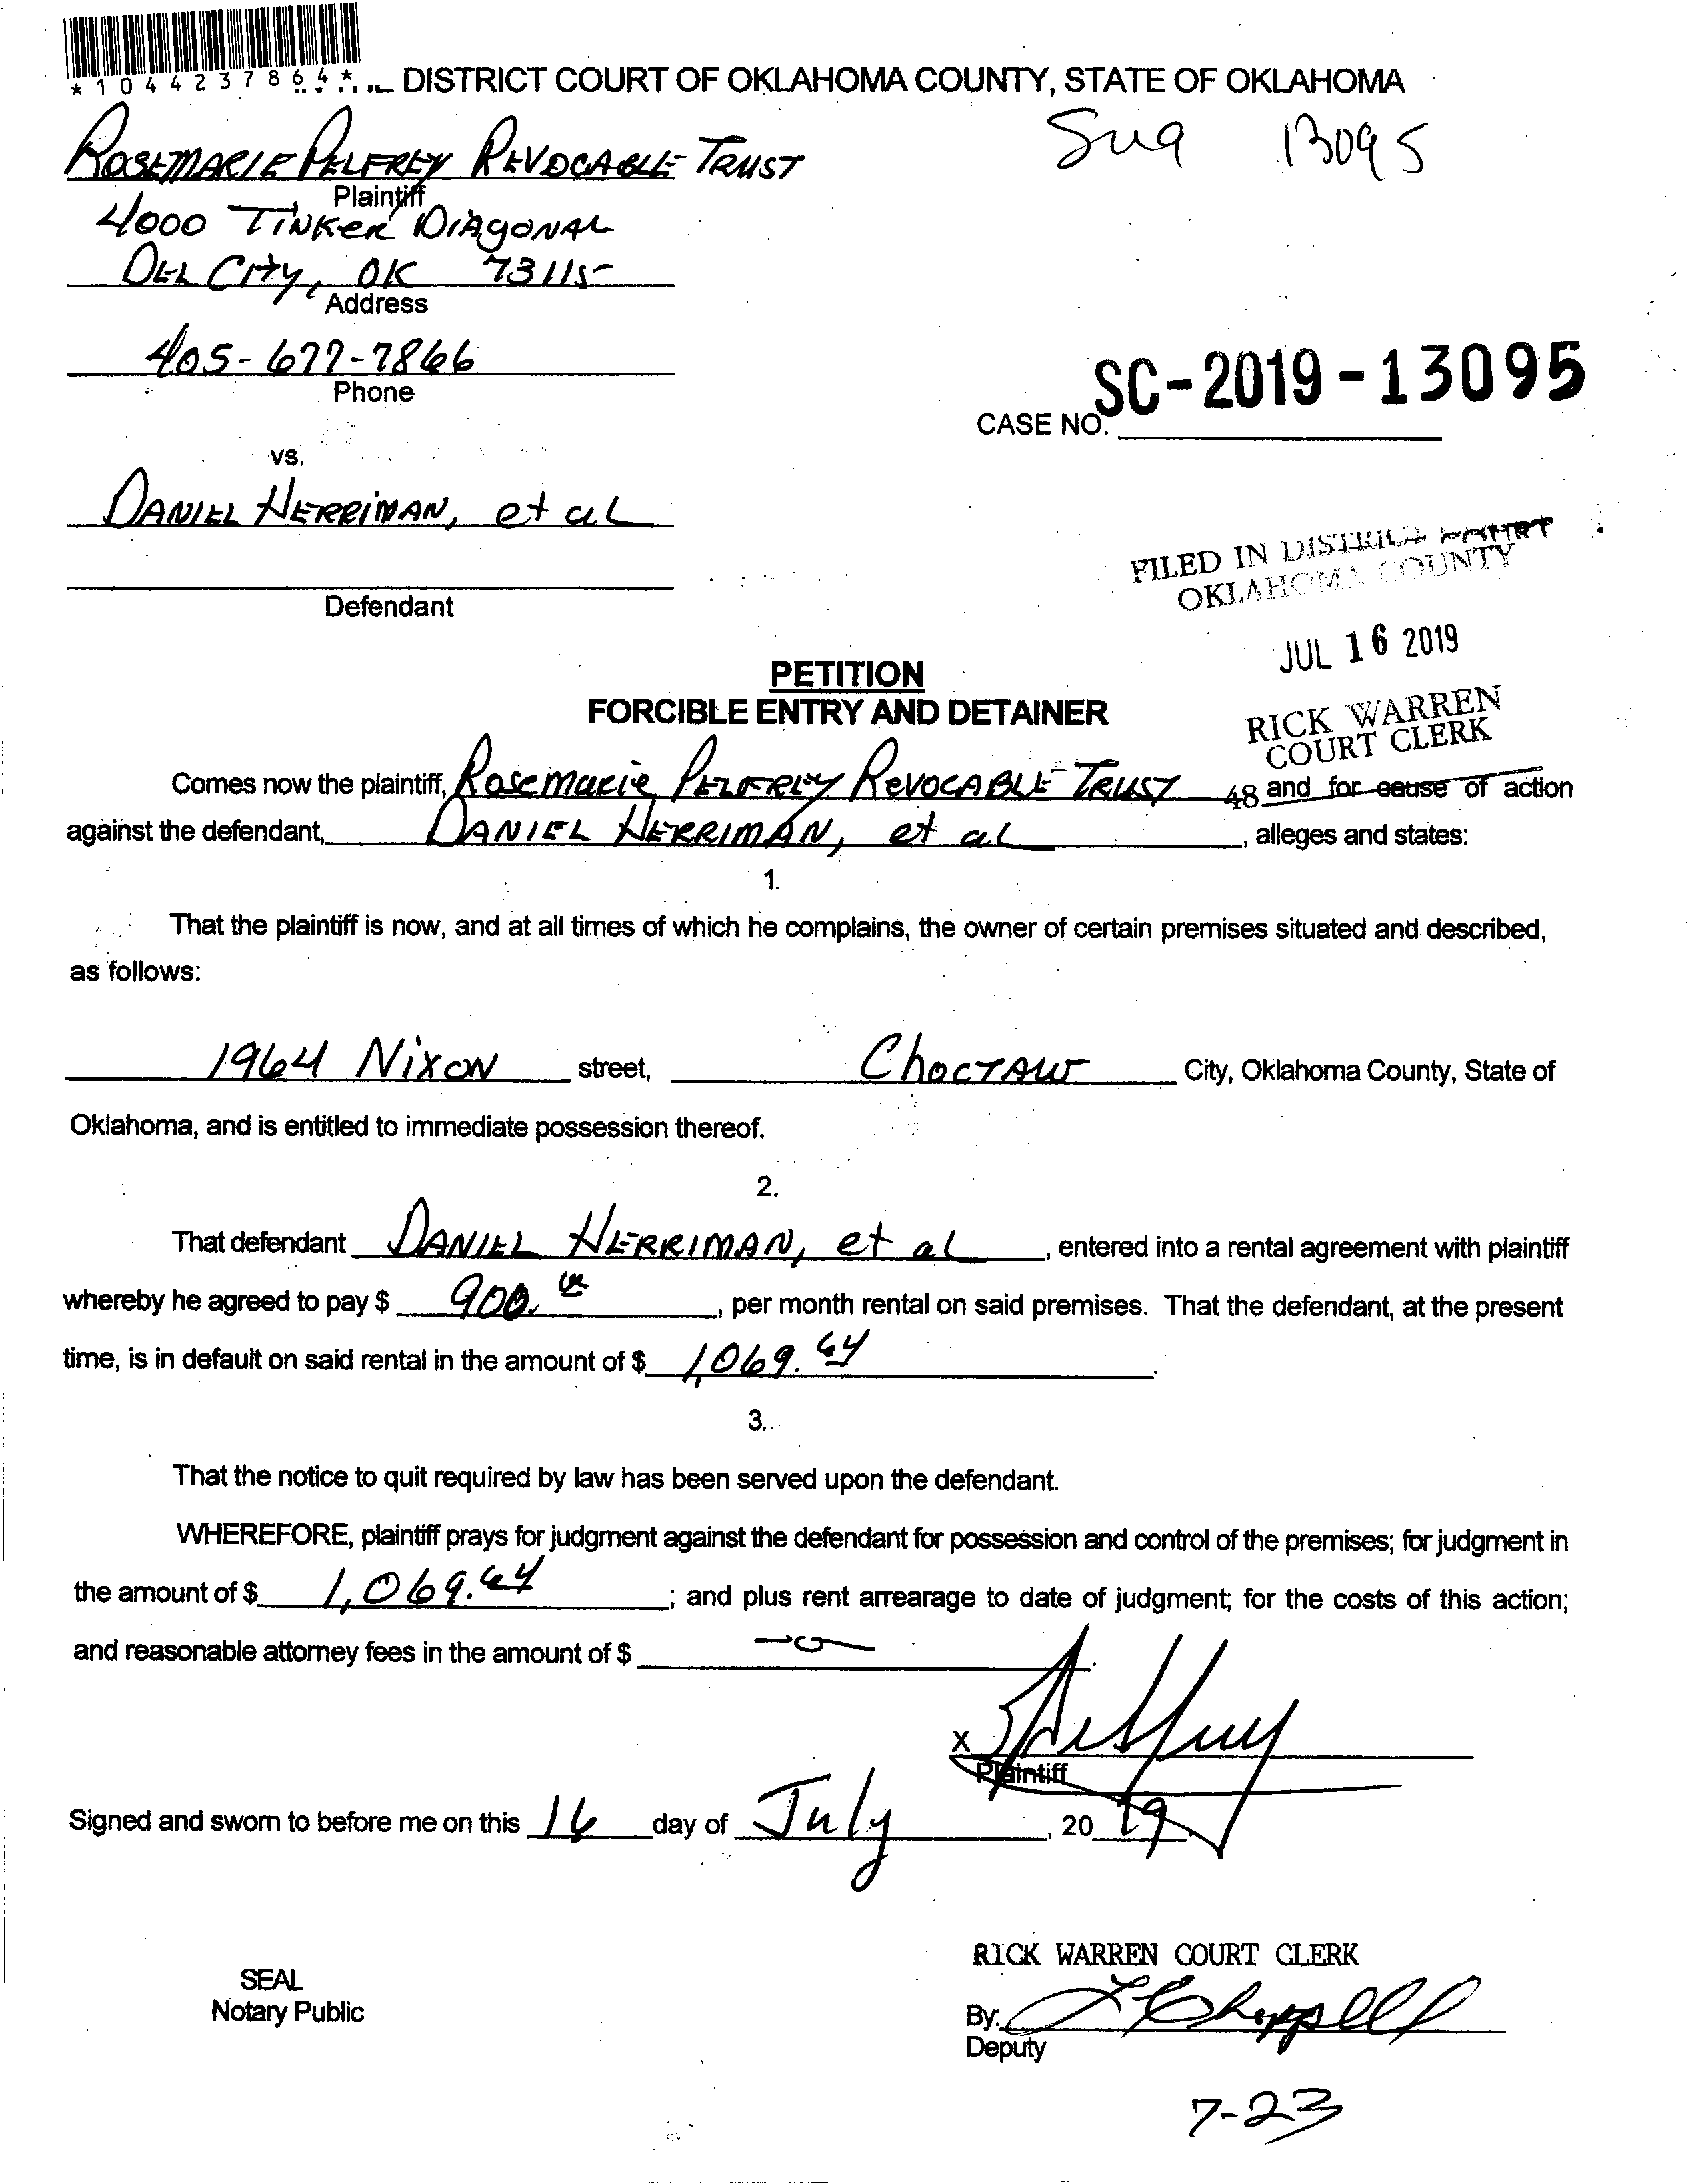 *1044237864* DISTRICT COURT OF OKLAHOMA COUNTY, STATE OF OKLAHOMA
ROSEMARIE PELFREY REVOCABLE TRUST 13095
Plaintiff
4000 TINKER DIAGONAL
DEL CITY, OK 73115
Address
405-677-7866
Phone
SC-2019-13095
CASE NO.
vs.
DANIEL HERRIMAN, et al
FILED IN DISTRICT COURT
OKLAHOMA COUNTY
Defendant
JUL 16 2019
PETITION
FORCIBLE ENTRY AND DETAINER
RICK WARREN
COURT CLERK
Comes now the plaintiff, Rosemarie PELFREY REVOCABLE TRUST 48 and for cause of action
against the defendant, DANIEL HERRIMAN, et al, alleges and states:
1.
That the plaintiff is now, and at all times of which he complains, the owner of certain premises situated and described,
as follows:
1964 Nixon street, Choctaw City, Oklahoma County, State of
Oklahoma, and is entitled to immediate possession thereof.
2.
That defendant DANIEL HERRIMAN, et al, entered into a rental agreement with plaintiff
whereby he agreed to pay $ 900., per month rental on said premises. That the defendant, at the present
time, is in default on said rental in the amount of $ 1,069.64.
3.
That the notice to quit required by law has been served upon the defendant.
WHEREFORE, plaintiff prays for judgment against the defendant for possession and control of the premises; for judgment in
the amount of $ 1,069.64; and plus rent arrearage to date of judgment; for the costs of this action;
and reasonable attorney fees in the amount of $ -0-
X
Plaintiff
Signed and sworn to before me on this 16 day of July, 20 19
RICK WARREN COURT CLERK
SEAL
Notary Public
By:
Deputy
7-23